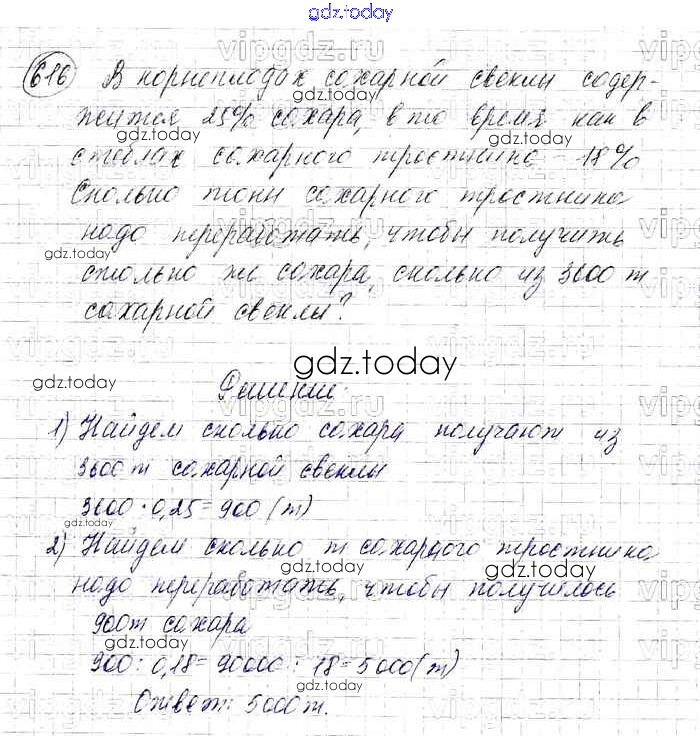 gdz.today
616 В корнеплодах сахарной свеклы содер-
жится 25% сахара, в то время как в
стеблях сахарного тростника - 18%
Сколько тонн сахарного тростника
надо переработать, чтобы получить
столько же сахара, сколько из 3600 т
сахарной свеклы?
gdz.today
Решение.
1) Найдем сколько сахара получают из
3600 т сахарной свеклы
3600 · 0,25 = 900 (т)
2) Найдем сколько т сахарного тростника
надо переработать, чтобы получилось
900т сахара
900 : 0,18 = 90000 : 18 = 5000 (т)
Ответ: 5000т.